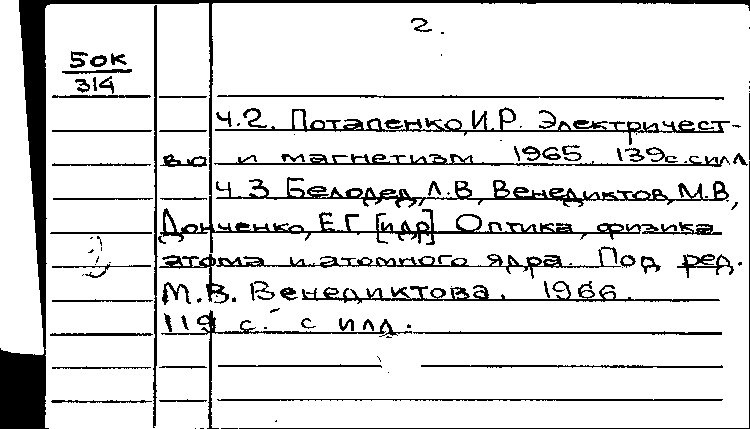 2.
5ок
314
ч.2. Потапенко, И.Р. Электричест-
во и магнетизм. 1965. 139с. с илл
ч.3 Белодед, Л.В, Венедиктов, М.В,
Донченко, Е.Г. [и др] Оптика, физика
атома и атомного ядра. Под ред.
М.В. Венедиктова. 1966.
119 с. с илл.